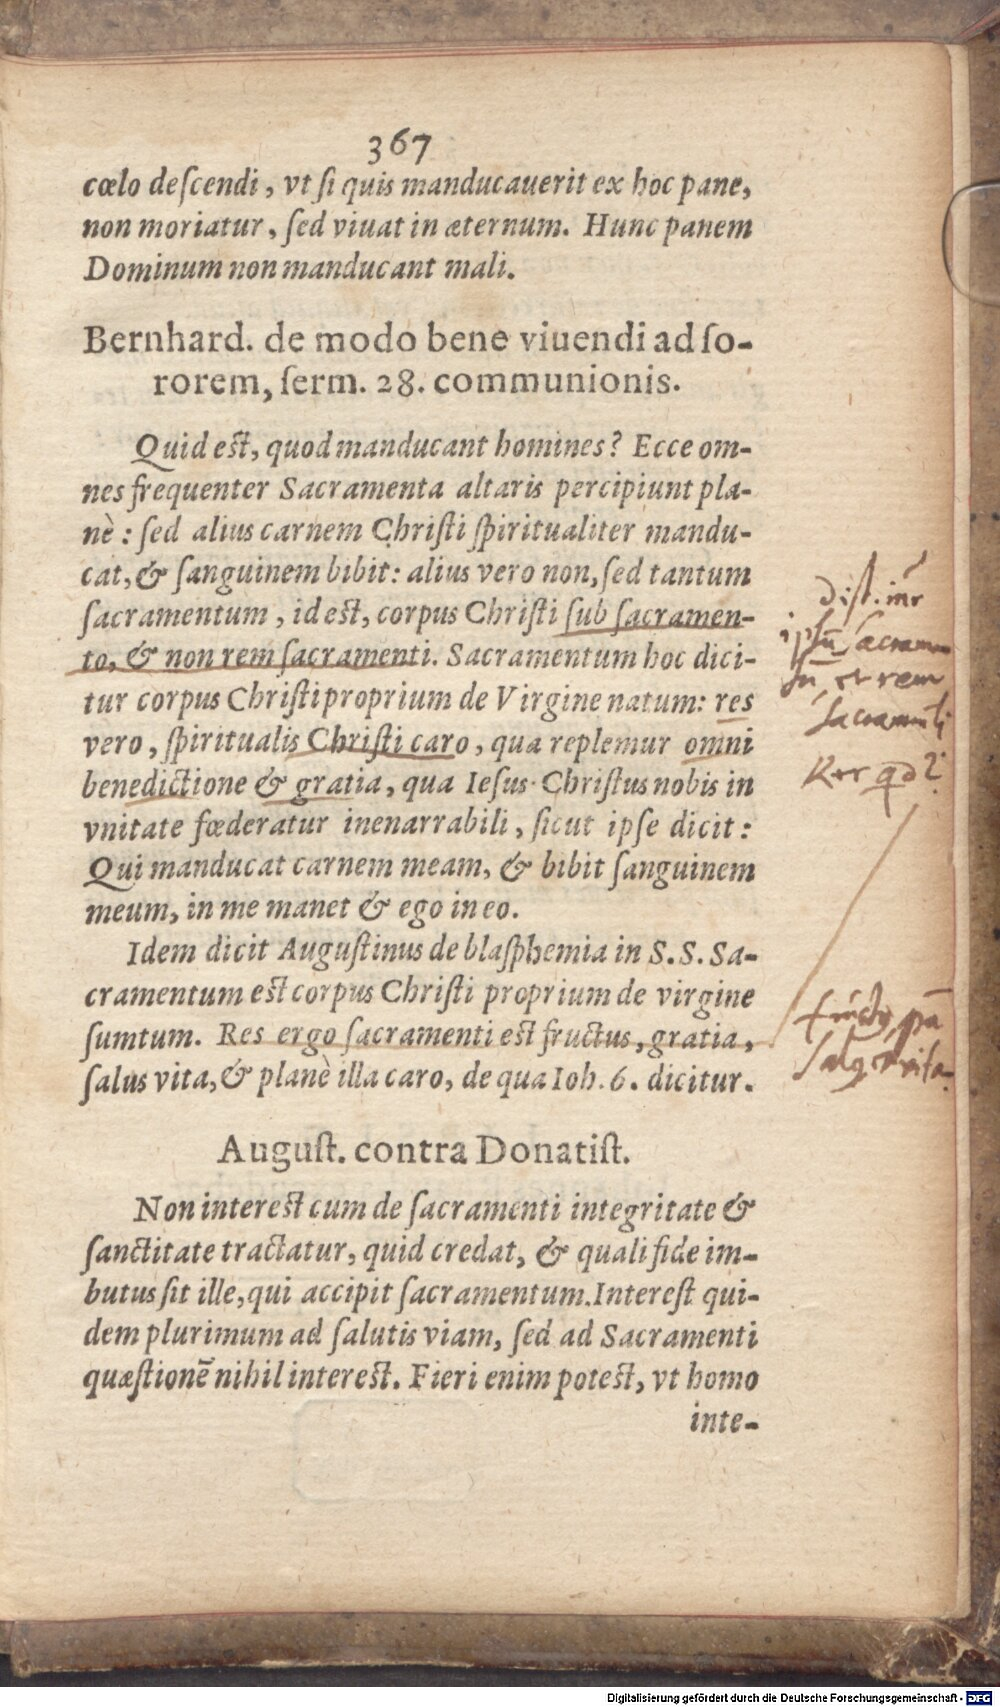 367
cœlo deſcendi, vt ſi quis manducauerit ex hoc pane,
non moriatur, ſed viuat in æternum. Hunc panem
Dominum non manducant mali.
Bernhard. de modo bene viuendi ad ſo-
rorem, ſerm. 28. communionis.
Quid eſt, quod manducant homines? Ecce om-
nes frequenter Sacramenta altaris percipiunt pla-
nè: ſed alius carnem Chriſti ſpiritualiter mandu-
cat, & ſanguinem bibit: alius vero non, ſed tantum
ſacramentum, id eſt, corpus Chriſti ſub ſacramen-
to, & non rem ſacramenti. Sacramentum hoc dici-
tur corpus Chriſti proprium de Virgine natum: res
vero, ſpiritualis Chriſti caro, qua replemur omni
benedictione & gratia, qua Ieſus Chriſtus nobis in
vnitate fœderatur inenarrabili, ſicut ipſe dicit:
Qui manducat carnem meam, & bibit ſanguinem
meum, in me manet & ego in eo.
Idem dicit Auguſtinus de blaſphemia in S. S. Sa-
cramentum eſt corpus Chriſti proprium de virgine
ſumtum. Res ergo ſacramenti eſt fructus, gratia,
ſalus vita, & planè illa caro, de qua Ioh. 6. dicitur.
Auguſt. contra Donatiſt.
Non intereſt cum de ſacramenti integritate &
ſanctitate tractatur, quid credat, & quali fide im-
butus ſit ille, qui accipit ſacramentum. Intereſt qui-
dem plurimum ad ſalutis viam, ſed ad Sacramenti
quæſtionē nihil intereſt. Fieri enim poteſt, vt homo
inte-
et rem
Sacramenti
Digitalisierung gefördert durch die Deutsche Forschungsgemeinschaft - DFG